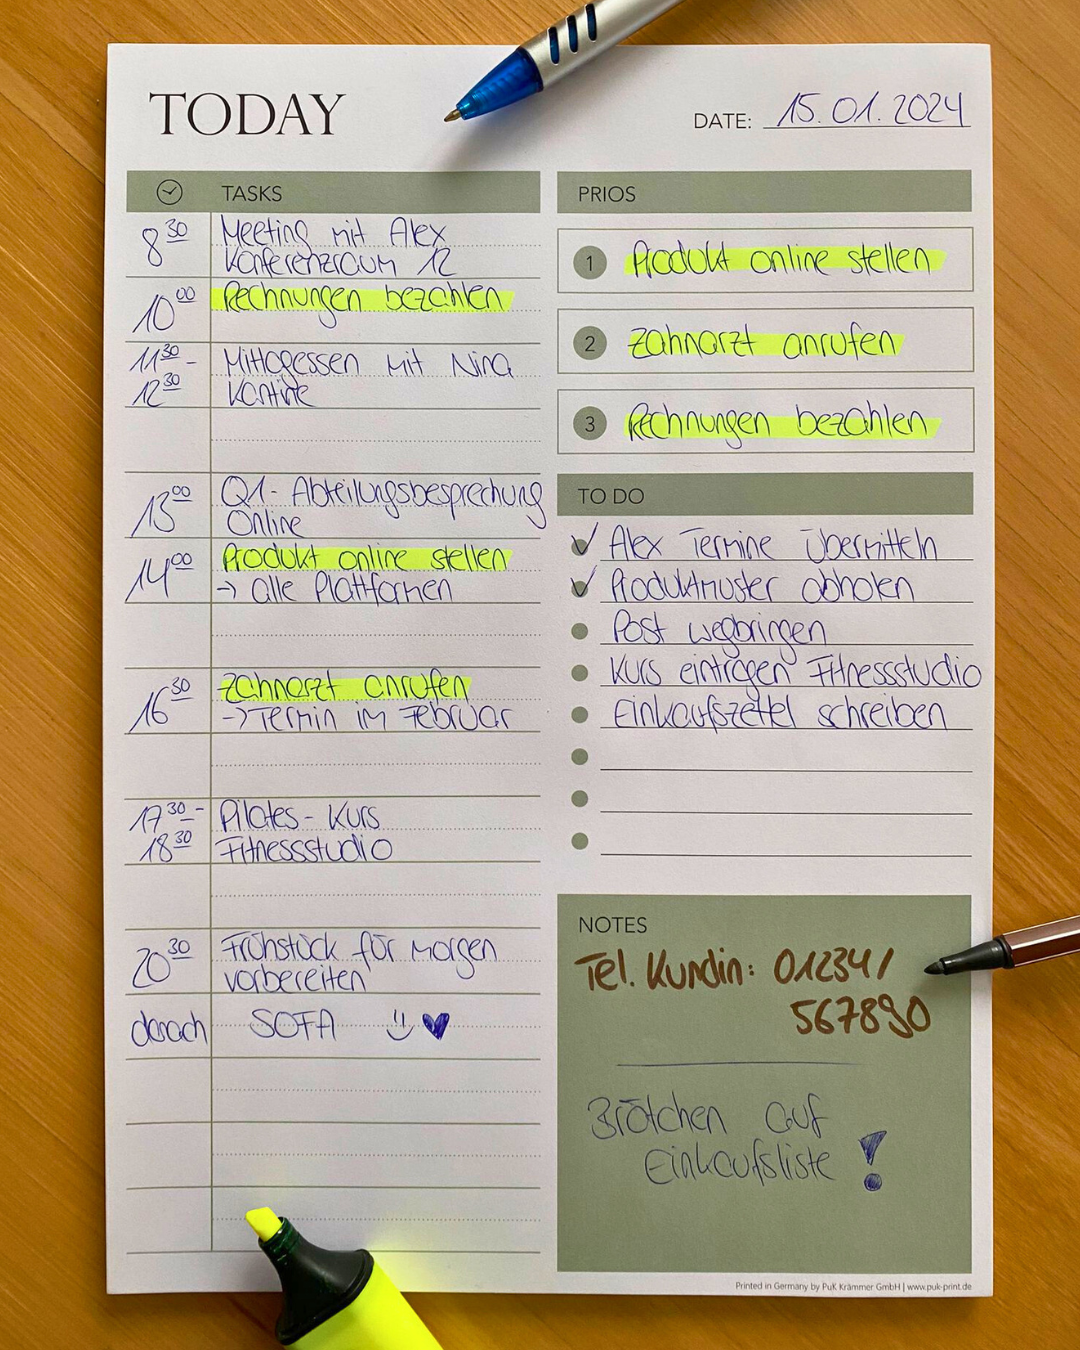 TODAY
DATE: 15.01.2024
TASKS
8 30 Meeting mit Alex
Konferenzraum 12
10 00 Rechnungen bezahlen
11 30 - Mittagessen mit Nina
12 30 Kantine
13 00 Q1 - Abteilungsbesprechung
Online
14 00 Produkt online stellen
→ alle Plattformen
16 30 Zahnarzt anrufen
→ Termin im Februar
17 30 - Pilates - Kurs
18 30 Fitnessstudio
20 30 Frühstück für morgen
vorbereiten
danach SOFA
PRIOS
1 Produkt online stellen
2 Zahnarzt anrufen
3 Rechnungen bezahlen
TO DO
Alex Termine übermitteln
Produktmuster abholen
Post wegbringen
Kurs eintragen Fitnessstudio
Einkaufszettel schreiben
NOTES
Tel. Kundin: 01234/
567890
Brötchen auf
Einkaufsliste !
Printed in Germany by PuK Krämmer GmbH | www.puk-print.de